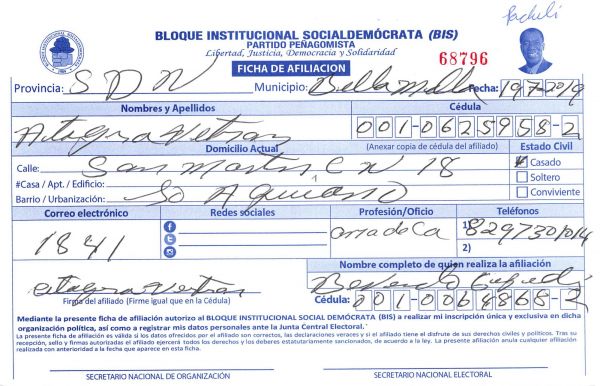 Pacheli
BLOQUE INSTITUCIONAL SOCIALDEMÓCRATA (BIS)
PARTIDO PEÑAGOMISTA
Libertad, Justicia, Democracia y Solidaridad
68796
FICHA DE AFILIACION
Provincia: SDN Municipio: Bella Fecha: 19/7/2019
Nombres y Apellidos Cédula
001-0625958-2
Domicilio Actual (Anexar copia de cédula del afiliado) Estado Civil
Calle: San Martin C N 18 Casado
#Casa / Apt. / Edificio: Soltero
Barrio / Urbanización: Conviviente
Correo electrónico Redes sociales Profesión/Oficio Teléfonos
1841 1) 8297301014
2)
Nombre completo de quien realiza la afiliación
Firma del afiliado (Firme igual que en la Cédula) Cédula: 001-0064868-2
Mediante la presente ficha de afiliación autorizo al BLOQUE INSTITUCIONAL SOCIAL DEMÓCRATA (BIS) a realizar mi inscripción única y exclusiva en dicha
organización política, así como a registrar mis datos personales ante la Junta Central Electoral.
La presente ficha de afiliación es válida si los datos ofrecidos por el afiliado son correctos, las declaraciones veraces y si el afiliado tiene el disfrute de sus derechos civiles y políticos. Tras su
recepción, sello y firmas autorizadas el afiliado ejercerá todos los derechos y los deberes estatutariamente sancionados, de acuerdo a la ley. La presente afiliación anula cualquier afiliación
realizada con anterioridad a la fecha que aparece en esta ficha.
SECRETARIO NACIONAL DE ORGANIZACIÓN SECRETARIO NACIONAL ELECTORAL